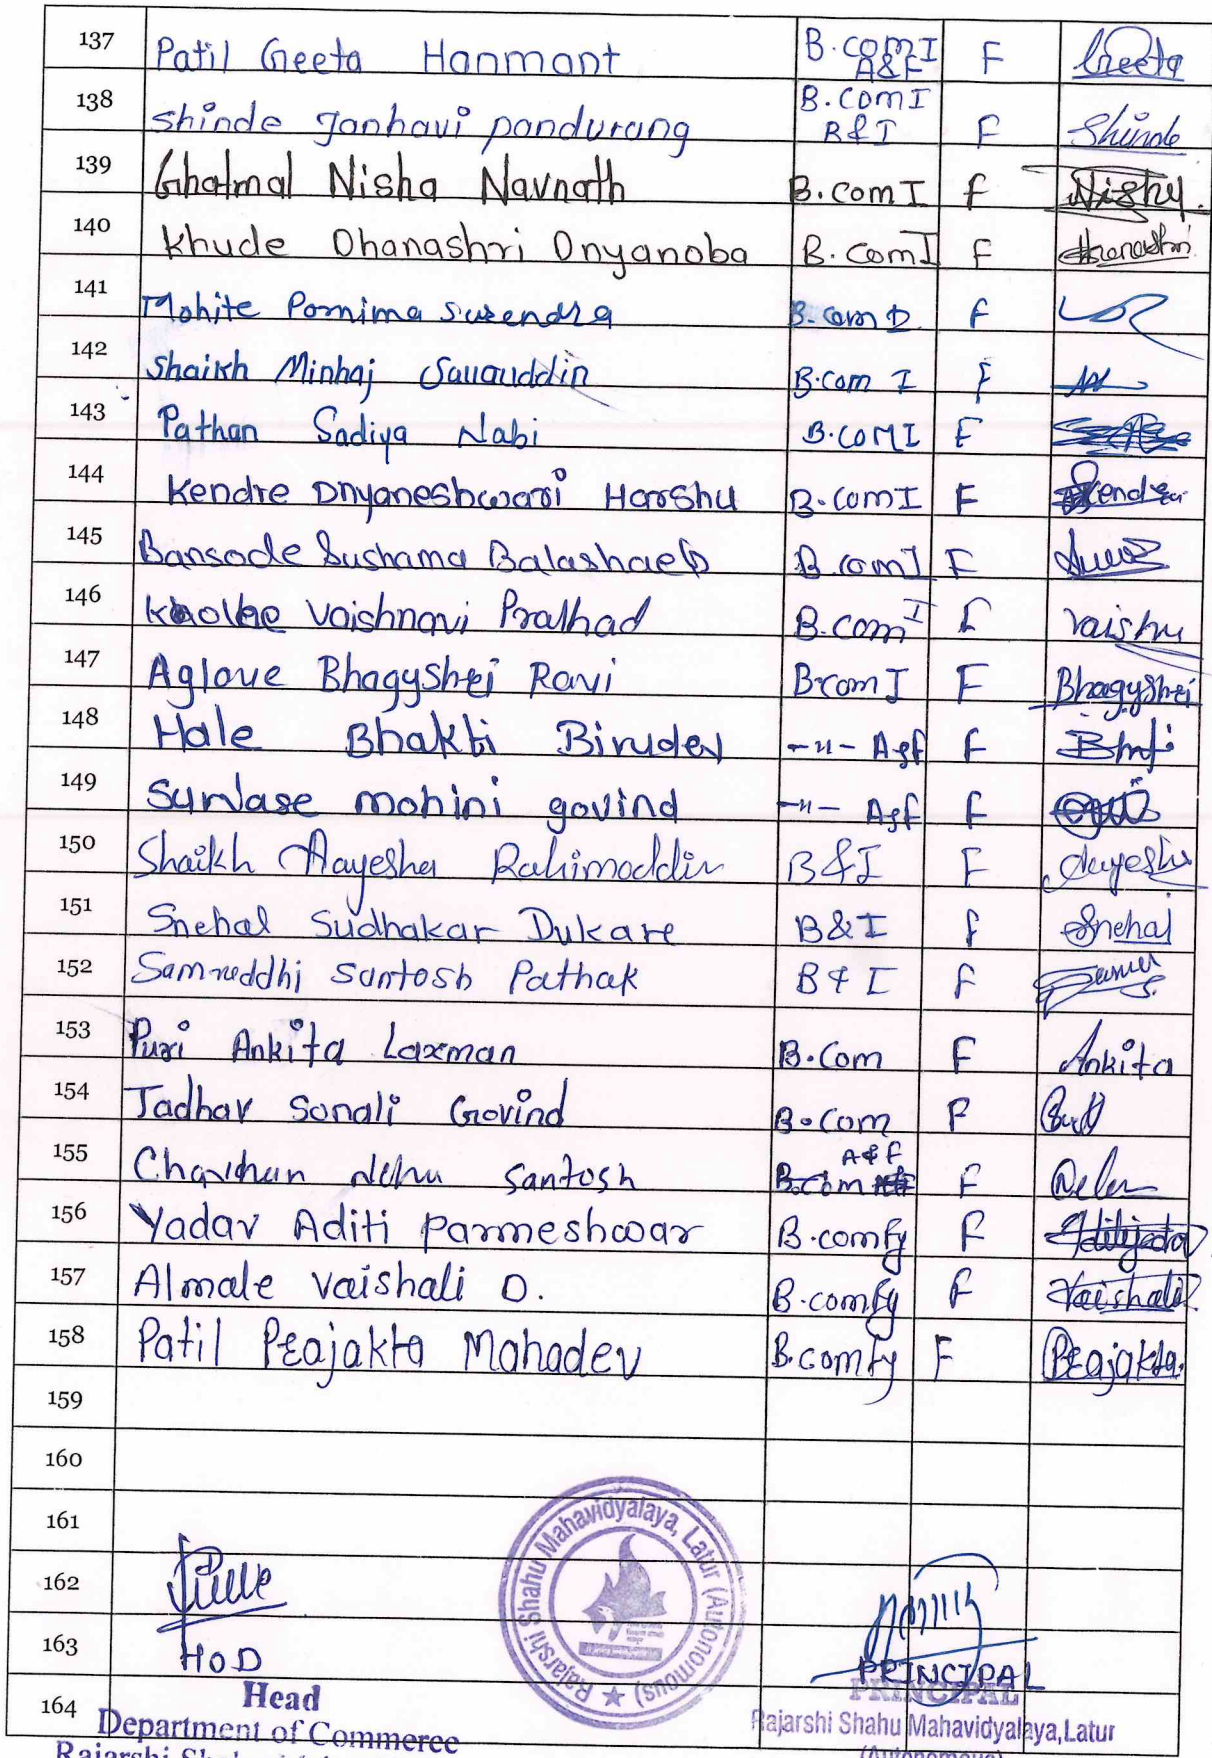 137 Patil Geeta Hanmant B.com I A&F F Geeta
138 Shinde Janhavi pandurang B.com I B&I F Shinde
139 Ghatmal Nisha Navnath B.com I F Nisha.
140 Khude Dhanashri Dnyanoba B.com I F Dhanashri
141 Mohite Pornima Surendra B.com I F
142 Shaikh Minhaj B.com I F
143 Pathan Sadiya Nabi B.COM I F
144 Kendre Dnyaneshwari Harshu B.com I F
145 Bansode Sushama Balashaeb B.com I F
146 Vaishnavi Pralhad B.com I F Vaishu
147 Aglave Bhagyshri Ravi B.com I F Bhagyshri
148 Hale Bhakti Birudev -"- A&F F
149 Surwase mohini govind -"- A&F F
150 Shaikh Aayesha Rahimoddin B&I F Aayesha
151 Snehal Sudhakar Dukare B&I F Snehal
152 Samruddhi Santosh Pathak B&I F
153 Puri Ankita Laxman B.Com F Ankita
154 Jadhav Sonali Govind B.Com F
155 Chavhan Neha Santosh B.com A&F F
156 Yadav Aditi Parmeshwar B.comfy F
157 Almale Vaishali D. B.comfy F Vaishali
158 Patil Prajakta Mahadev B.comfy F Prajakta.
159
160
161
162
163
164
Rajarshi Shahu Mahavidyalaya, Latur (Autonomous) ★
HOD
Head
Department of Commerce
PRINCIPAL
PRINCIPAL
Rajarshi Shahu Mahavidyalaya,Latur
(Autonomous)